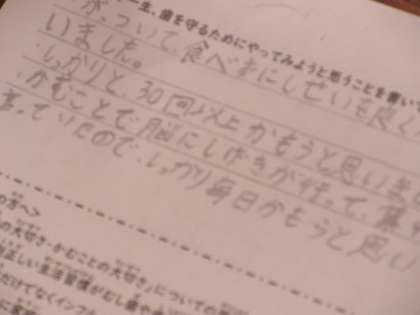 一生、歯を守るためにやってみようと思うことを書いて
が、ついて、食べずにしせいも良く
いました。
しっかりと、30回以上かもうと思いま
かむことで脳にしげきが行って、集
言っていたので、しっかり毎日かもうと思い
の方へ>
の大切さ・かむことの大切さ」についての
正しい生活習慣がむし歯や
だけでなくインフ